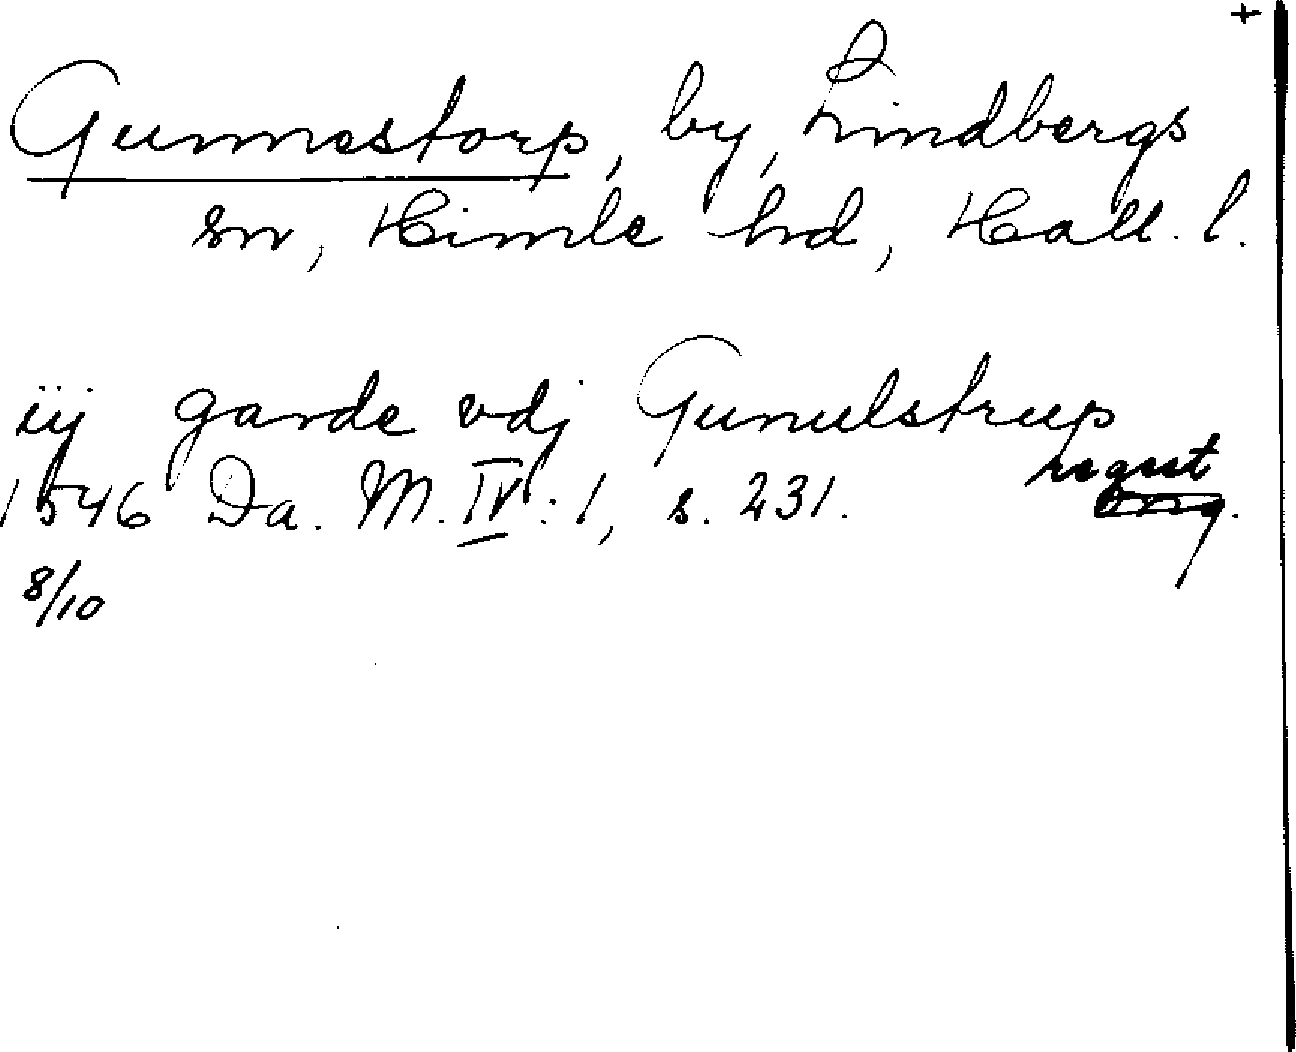 +
Gunnestorp, by, Lindbergs
sn, Himle hd, Hall. l.
iij garde vdj Gunulstrup
1546 Da. M. IV: 1, s. 231.
8/10